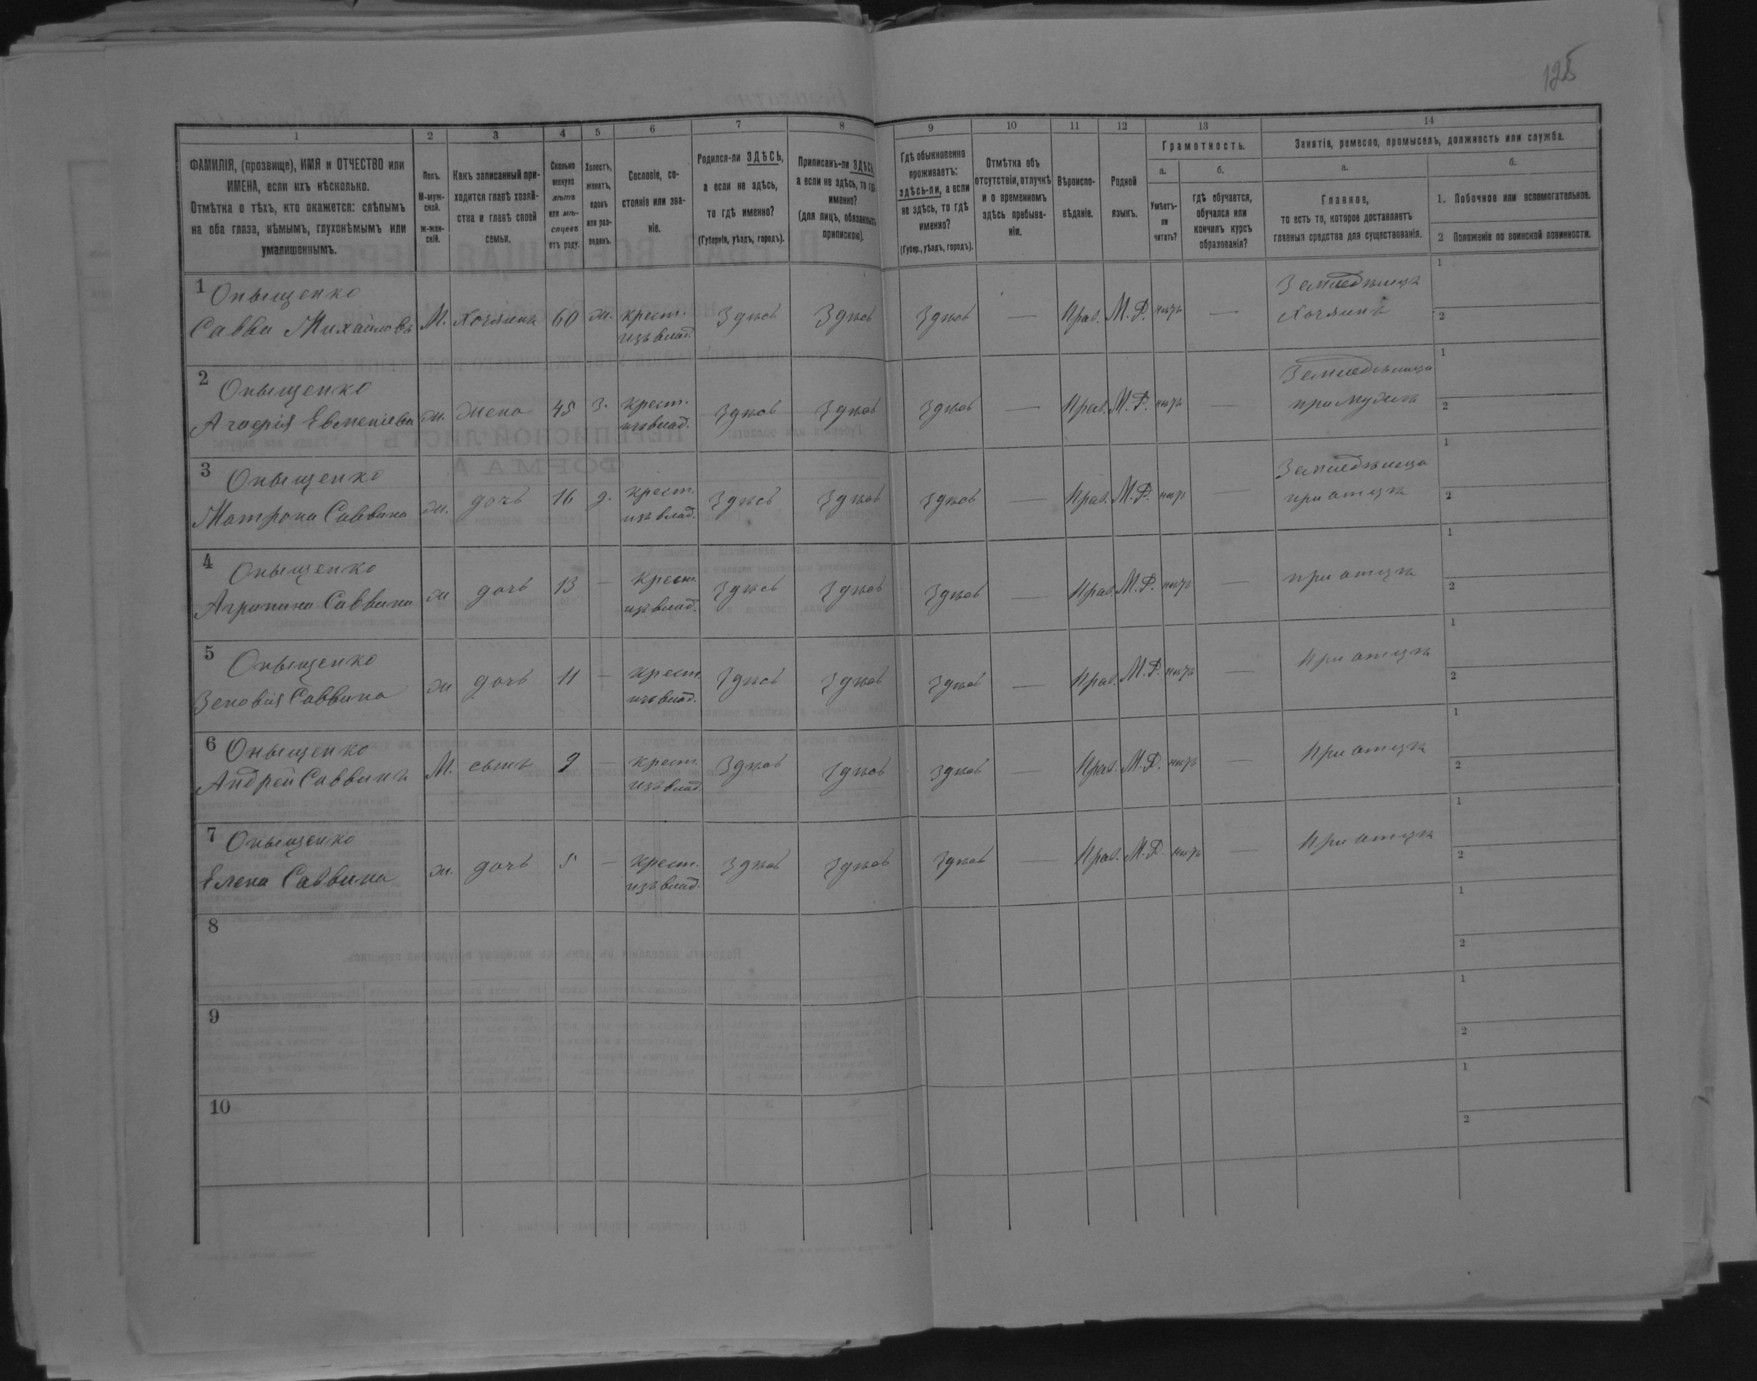 125
1
2
3
4
5
6
7
8
9
10
11
12
13
14
ФАМИЛІЯ, (прозвище), ИМЯ и ОТЧЕСТВО или
ИМЕНА, если ихъ нѣсколько.
Отмѣтка о тѣхъ, кто окажется: слѣпымъ
на оба глаза, нѣмымъ, глухонѣмымъ или
умалишеннымъ.
Полъ.
М-муж-
ской.
ж-жен-
скій.
Какъ записанный при-
ходится главѣ хозяй-
ства и главѣ своей
семьи.
Сколько
минуло
лѣтъ
или мѣ-
сяцевъ
отъ роду.
Холостъ,
женатъ,
вдовъ
или раз-
веденъ.
Сословіе, со-
стояніе или зва-
ніе.
Родился-ли ЗДѢСЬ,
а если не здѣсь,
то гдѣ именно?
(Губернія, уѣздъ, городъ).
Приписанъ-ли ЗДѢСЬ,
а если не здѣсь, то гдѣ
именно?
(для лицъ, обязанныхъ
припиской).
Гдѣ обыкновенно
проживаетъ:
здѣсь-ли, а если
не здѣсь, то гдѣ
именно?
(Губер., уѣздъ, городъ).
Отмѣтка объ
отсутствіи, отлучкѣ
и о временномъ
здѣсь пребыва-
ніи.
Вѣроиспо-
вѣданіе.
Родной
языкъ.
Грамотность.
а.
Умѣетъ-
ли
читать?
б.
гдѣ обучается,
обучался или
кончилъ курсъ
образованія?
Занятія, ремесло, промыселъ, должность или служба.
а.
Главное,
то есть то, которое доставляетъ
главныя средства для существованія.
б.
1. Побочное или вспомогательное.
2 Положеніе по воинской повинности.
1 Оныщенко
Савва Михайловъ М. Хозяинъ 60 ж. крест. Здѣсь Здѣсь Здѣсь — Прав. М.Р. нѣтъ —
изъ влад.
Земледѣлецъ
Хозяинъ
1
2
2 Оныщенко
Агафія Евменіева ж. жена 45 з. крест. Здѣсь Здѣсь Здѣсь — Прав. М.Р. нѣтъ —
изъ влад.
Земледѣлица
при мужѣ
1
2
3 Оныщенко
Матрона Саввина ж. дочь 16 д. крест. Здѣсь Здѣсь Здѣсь — Прав. М.Р. нѣтъ —
изъ влад.
Земледѣлица
при отцѣ
1
2
4 Оныщенко
Агрипина Саввина ж дочь 13 — крест. Здѣсь Здѣсь Здѣсь — Прав. М.Р. нѣтъ — при отцѣ
изъ влад.
1
2
5 Оныщенко
Зеновія Саввина ж дочь 11 — крест. Здѣсь Здѣсь Здѣсь — Прав. М.Р. нѣтъ — При отцѣ
изъ влад.
1
2
6 Оныщенко
Андрей Саввинъ М. сынъ 9 — крест. Здѣсь Здѣсь Здѣсь — Прав. М.Р. нѣтъ — При отцѣ
изъ влад.
1
2
7 Оныщенко
Елена Саввина ж. дочь 5 — крест. Здѣсь Здѣсь Здѣсь — Прав. М.Р. нѣтъ — При отцѣ
изъ влад.
1
2
8
1
2
9
1
2
10
1
2